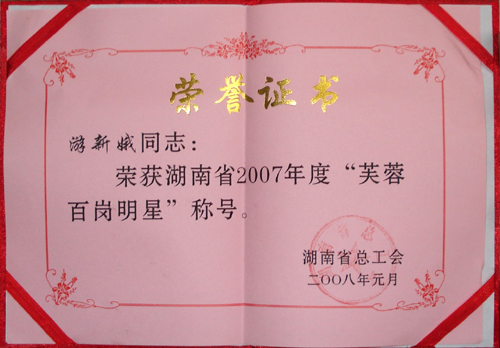 荣誉证书
游新娥同志：
荣获湖南省2007年度“芙蓉
百岗明星”称号。
湖南省总工会
二〇〇八年元月